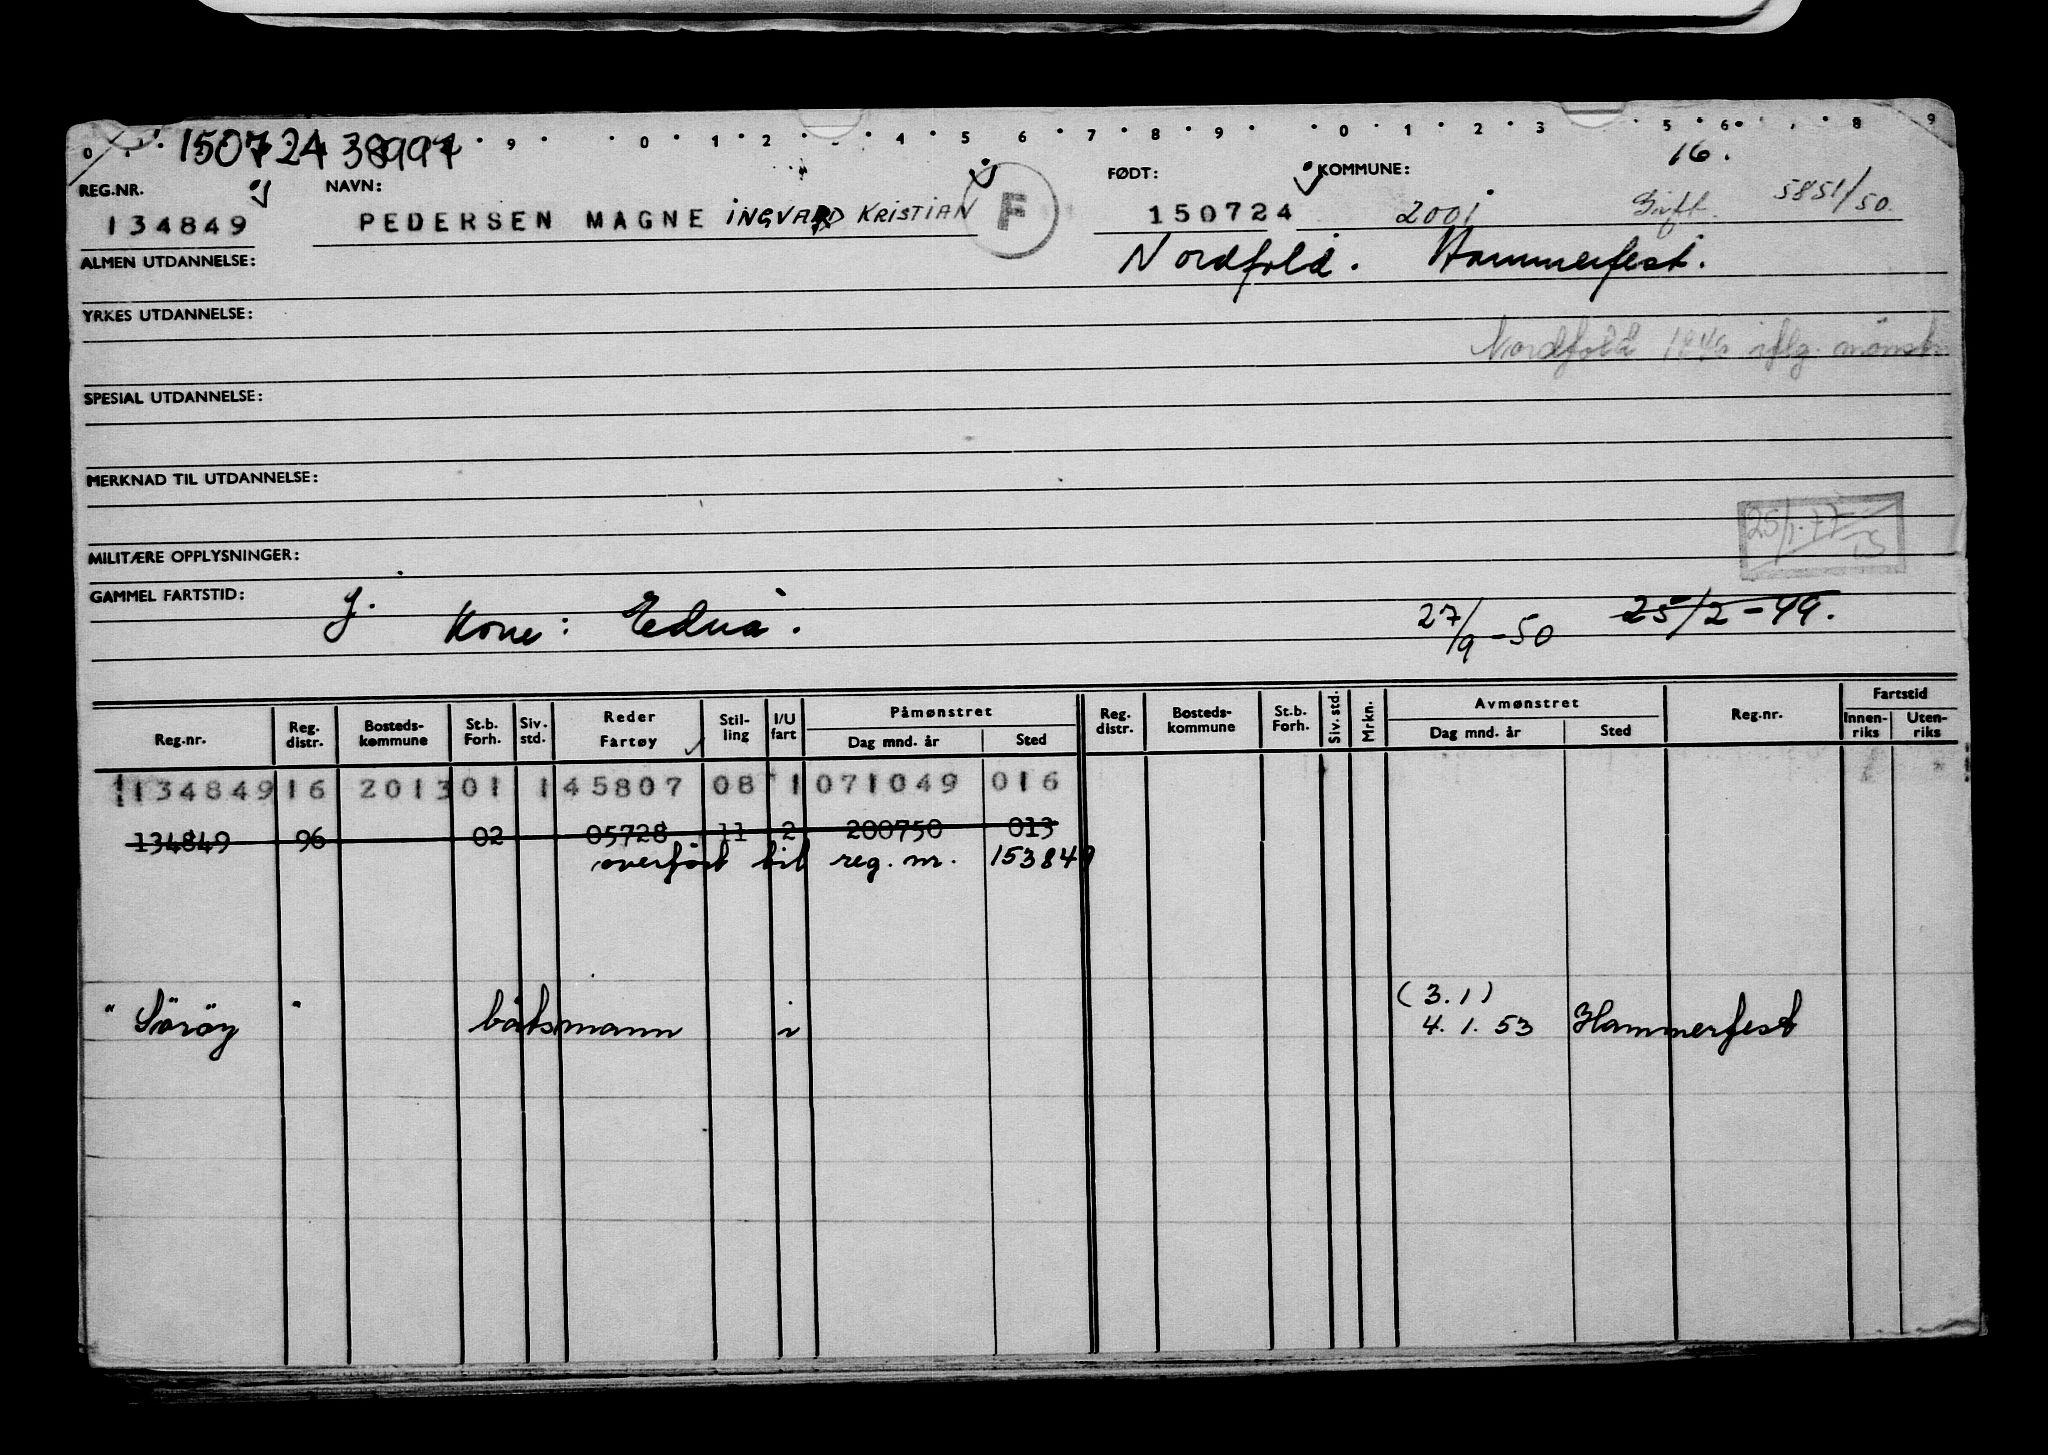 0 9 0 1 2 4 5 6 7 8 9 0 1 2 3 5 6 8 9
150724 38997
16.
REG.NR. NAVN: FØDT: KOMMUNE:
134849 PEDERSEN MAGNE INGVARD KRISTIAN F 150724 2001 Gift. 5851/50
ALMEN UTDANNELSE: Nordfold. Hammerfest.
YRKES UTDANNELSE:
Nordfold iflg. mønstr
SPESIAL UTDANNELSE:
MERKNAD TIL UTDANNELSE:
MILITÆRE OPPLYSNINGER:
GAMMEL FARTSTID: j. Kone: Edna. 27/9-50 25/2-49.
Reg.nr. Reg. distr. Bosteds-kommune St.b. Forh. Siv. std. Reder Fartøy Stil-ling I/U fart Påmønstret Dag mnd. år Sted Reg. distr. Bosteds-kommune St.b. Forh. Siv. std. Mrkn. Avmønstret Dag mnd. år Sted Reg.nr. Fartstid Innen-riks Uten-riks
134849 16 2013 01 1 45807 08 1 071049 016
134849 96 02 05728 11 2 200750 013
overført til reg. nr. 153849
(3.1)
"Sørøy" båtsmann i 4.1.53 Hammerfest